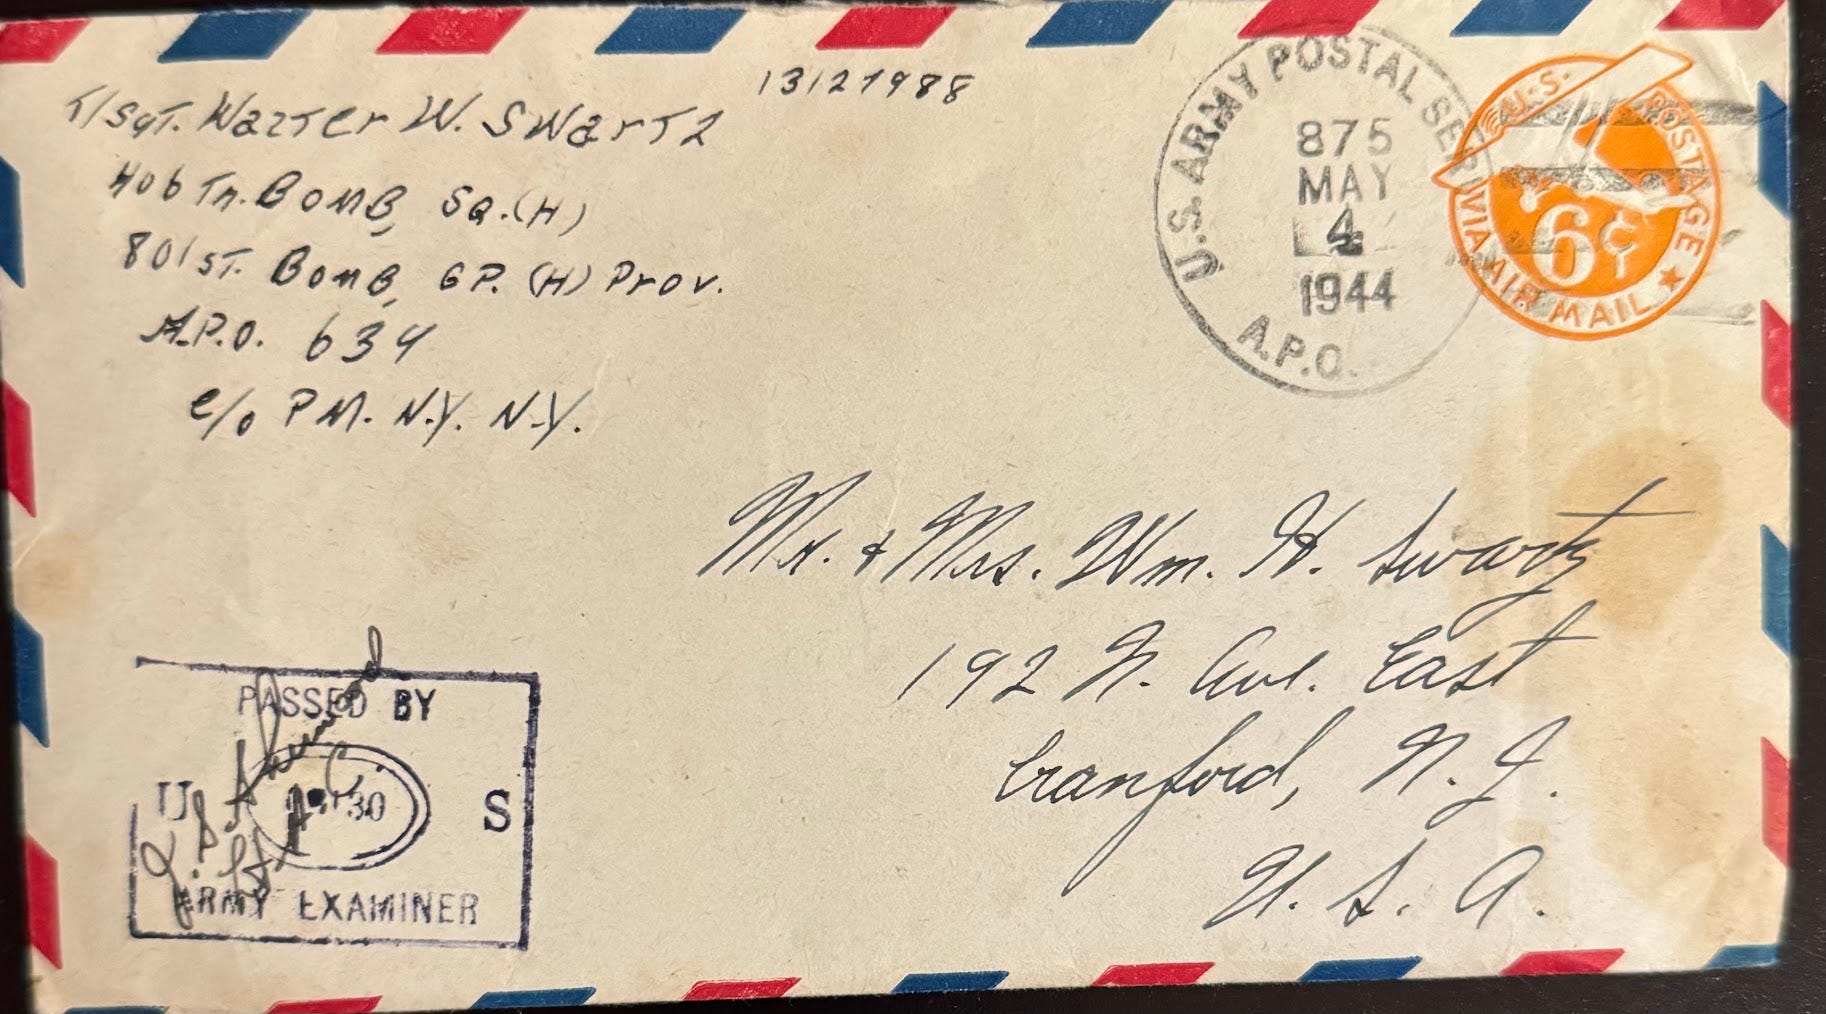 T/Sgt. Walter W. Swartz 13127988
406 Th. Bomb. Sq. (H)
801 st. Bomb. GP. (H) Prov.
A.P.O. 634
c/o P.M. N.Y. N.Y.
U.S. ARMY POSTAL SER
875
MAY
4
1944
A.P.O.
U.S. POSTAGE
6¢
VIA AIR MAIL
Mr. & Mrs. Wm. H. Swartz
192 N. Ave. East
Cranford, N. J.
U. S. A.
PASSED BY
U S
30
ARMY EXAMINER